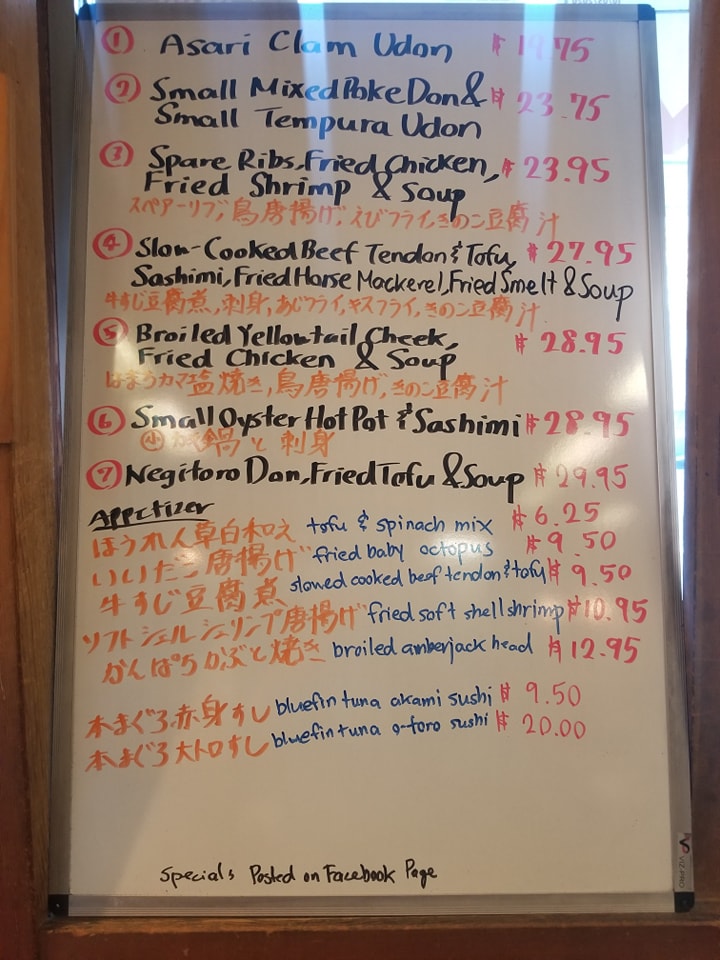 ① Asari Clam Udon $ 19.75
② Small Mixed Poke Don &
Small Tempura Udon $ 23.75
③ Spare Ribs, Fried Chicken, $ 23.95
Fried Shrimp & Soup
スペアーリブ, 鳥唐揚げ, えびフライ, きのこ豆腐汁
④ Slow-Cooked Beef Tendon & Tofu, $ 27.95
Sashimi, Fried Horse Mackerel, Fried Smelt & Soup
牛すじ豆腐煮, 刺身, あじフライ, キスフライ, きのこ豆腐汁
⑤ Broiled Yellowtail Cheek, $ 28.95
Fried Chicken & Soup
はまちカマ塩焼き, 鳥唐揚げ, きのこ豆腐汁
⑥ Small Oyster Hot Pot & Sashimi $ 28.95
㊙小 かき鍋 と 刺身
⑦ Negitoro Don, Fried Tofu & Soup $ 29.95
Appetizer
ほうれん草白和え tofu & spinach mix $ 6.25
いいだこ唐揚げ fried baby octopus $ 9.50
牛すじ豆腐煮 slowed cooked beef tendon & tofu $ 9.50
ソフトシェルシュリンプ唐揚げ fried soft shell shrimp $ 10.95
かんぱちかぶと焼き broiled amberjack head $ 12.95
本まぐろ赤身すし bluefin tuna akami sushi $ 9.50
本まぐろ大トロすし bluefin tuna o-toro sushi $ 20.00
Specials Posted on Facebook Page
VIZ-PRO